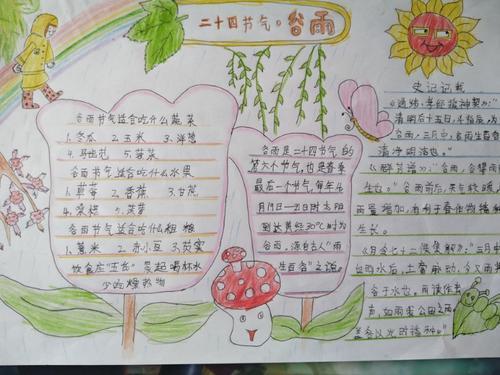 二十四节气·谷雨
谷雨节气适合吃什么蔬菜
1.冬瓜 2.玉米 3.洋葱
4.马齿苋 5.菠菜
谷雨节气适合吃什么水果
1.草莓 2.香蕉 3.甘蔗
4.桑椹 5.菠萝
谷雨节气适合吃什么粗粮
1.薏米 2.赤小豆 3.荞麦
饮食应"五去" 晨起喝杯水
少吃燥热物
谷雨是二十四节气的
第六个节气,也是春季
最后一个节气,每年4
月19日—21日时太阳
到达黄经30°C时为
谷雨,源自古人"雨
生百谷"之说。
史记记载
《通纬·孝经援神契》:
清明后十五日,斗指辰,为
谷雨,三月中,言雨生百谷
清净明洁也。"
《群芳谱》:"谷雨,谷得雨而
生也。"谷雨前后,天气较暖,
雨量增加,有利于春作物播种
生长。
《月令七十二候集解》:"三月中,
自雨水后,土膏脉动,今又雨其
谷于水也。雨读作去
声,如雨我公田之雨。
盖谷以此时播种。"